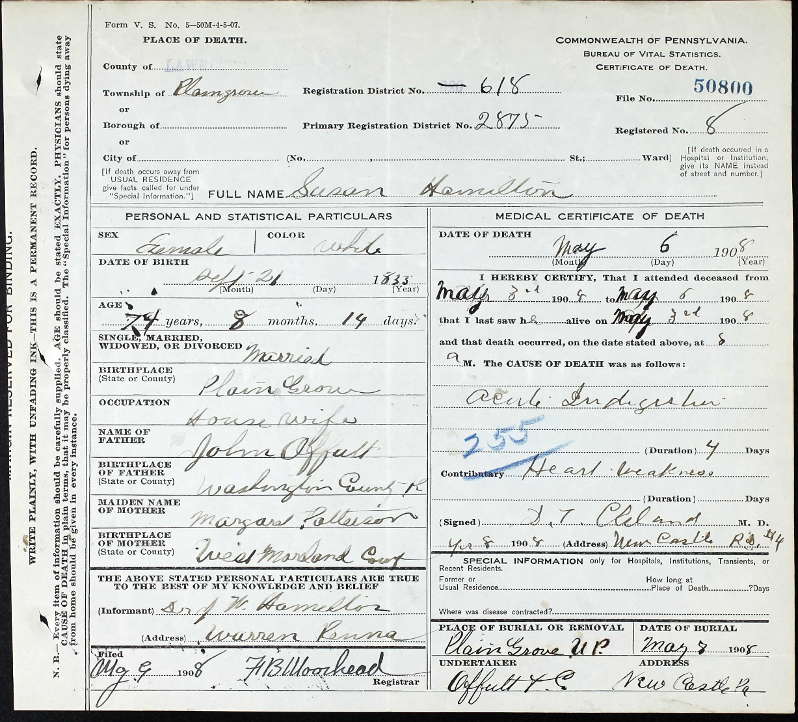 Form V. S. No. 5—50M-4-5-07.
PLACE OF DEATH.
COMMONWEALTH OF PENNSYLVANIA.
BUREAU OF VITAL STATISTICS.
CERTIFICATE OF DEATH.
County of
Township of Plaingrove
or
Borough of
or
City of
Registration District No. 618
Primary Registration District No. 2875
File No. 50800
Registered No. 8
(No. St.; Ward)
[If death occurred in a Hospital or Institution, give its NAME instead of street and number.]
[If death occurs away from USUAL RESIDENCE give facts called for under "Special Information."]
FULL NAME Susan Hamilton
PERSONAL AND STATISTICAL PARTICULARS
SEX Female
COLOR White
DATE OF BIRTH
Sept 21 1833
(Month) (Day) (Year)
AGE
74 years, 8 months, 14 days.
SINGLE, MARRIED,
WIDOWED, OR DIVORCED Married
BIRTHPLACE
(State or County) Plain Grove
OCCUPATION
House wife
NAME OF
FATHER John Offutt
BIRTHPLACE
OF FATHER
(State or County) Washington County
MAIDEN NAME
OF MOTHER Margaret Patterson
BIRTHPLACE
OF MOTHER
(State or County) West Moreland County
THE ABOVE STATED PERSONAL PARTICULARS ARE TRUE
TO THE BEST OF MY KNOWLEDGE AND BELIEF
(Informant) W. Hamilton
(Address) Warren Penna
Filed
9 1908 F B Moorhead
Registrar
MEDICAL CERTIFICATE OF DEATH
DATE OF DEATH
May 6 1908
(Month) (Day) (Year)
I HEREBY CERTIFY, That I attended deceased from
May 3rd 1908 to May 6 1908
that I last saw he alive on May 3rd 1908
and that death occurred, on the date stated above, at 8
a M. The CAUSE OF DEATH was as follows:
Acute Indigestion
255
(Duration) 4 Days
Contributary Heart Weakness
(Duration) Days
(Signed) D. T. Cleland M. D.
8 1908 (Address) New Castle R.D. #4
SPECIAL INFORMATION only for Hospitals, Institutions, Transients, or Recent Residents.
Former or
Usual Residence
How long at
Place of Death ?Days
Where was disease contracted?
PLACE OF BURIAL OR REMOVAL
Plain Grove U P.
DATE OF BURIAL
May 8 1908
UNDERTAKER
Offutt & C.
ADDRESS
New Castle Pa
MARGIN RESERVED FOR BINDING.
WRITE PLAINLY, WITH UNFADING INK—THIS IS A PERMANENT RECORD.
N. B.—Every item of information should be carefully supplied. AGE should be stated EXACTLY. PHYSICIANS should state
CAUSE OF DEATH in plain terms, that it may be properly classified. The "Special Information" for persons dying away
from home should be given in every instance.